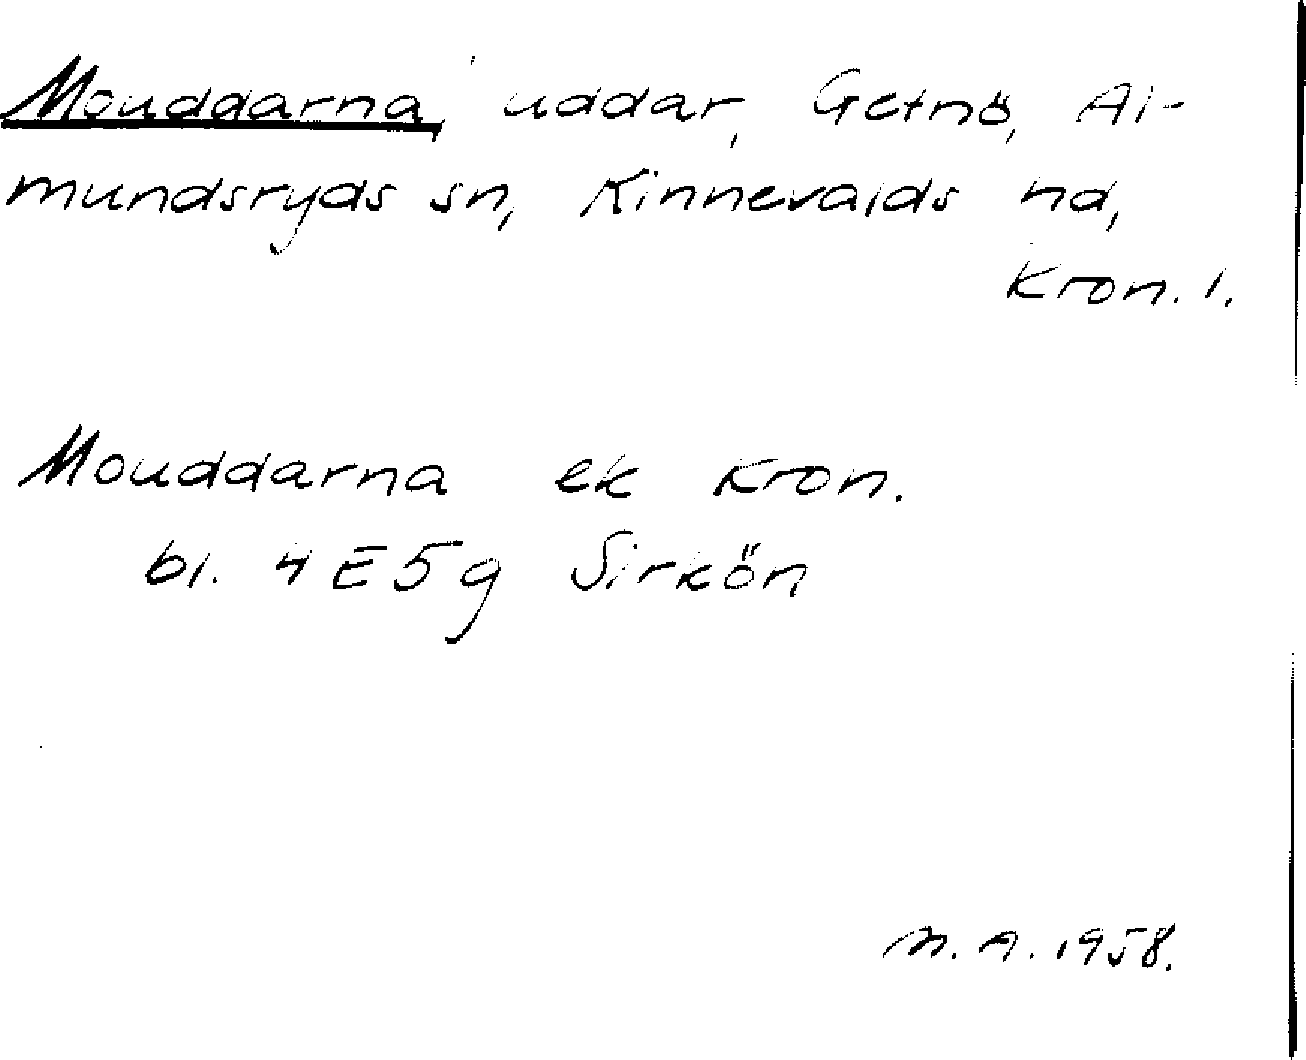 Mouddarna, uddar, Getnö, Al-
mundsryds sn, Kinnevalds hd,
Kron. l.
Mouddarna ek Kron.
bl. 4E5g Sirkön
M. A. 1958.